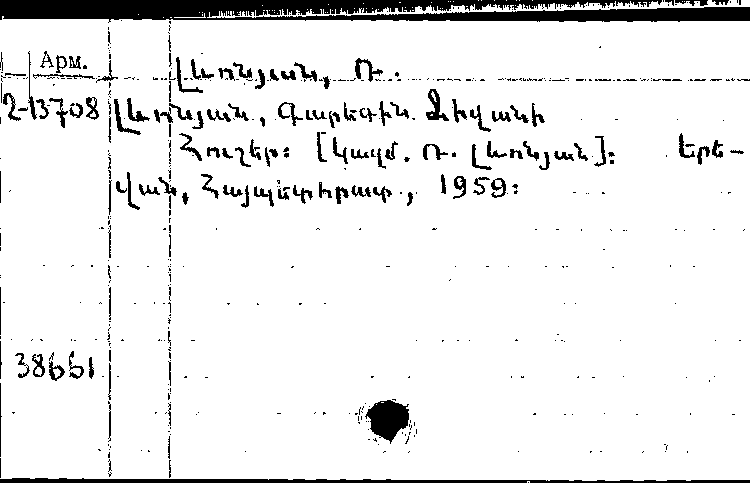 Арм.
Լևոնյան, Ռ.
2-13708 Լևոնյան, Գարեգին Ջիվանի
Հուշեր: [Կազմ. Ռ. Լևոնյան]: Երե-
վան, Հայպետհրատ, 1959:
38661